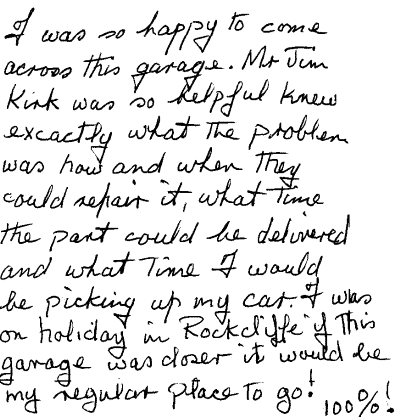 I was so happy to come
across this garage. Mr Jim
Kirk was so helpful knew
excactly what the problem
was how and when they
could repair it, what time
the part could be delivered
and what Time I would
be picking up my car. I was
on holiday in Rockcliffe if this
garage was closer it would be
my regular place to go! 100%!